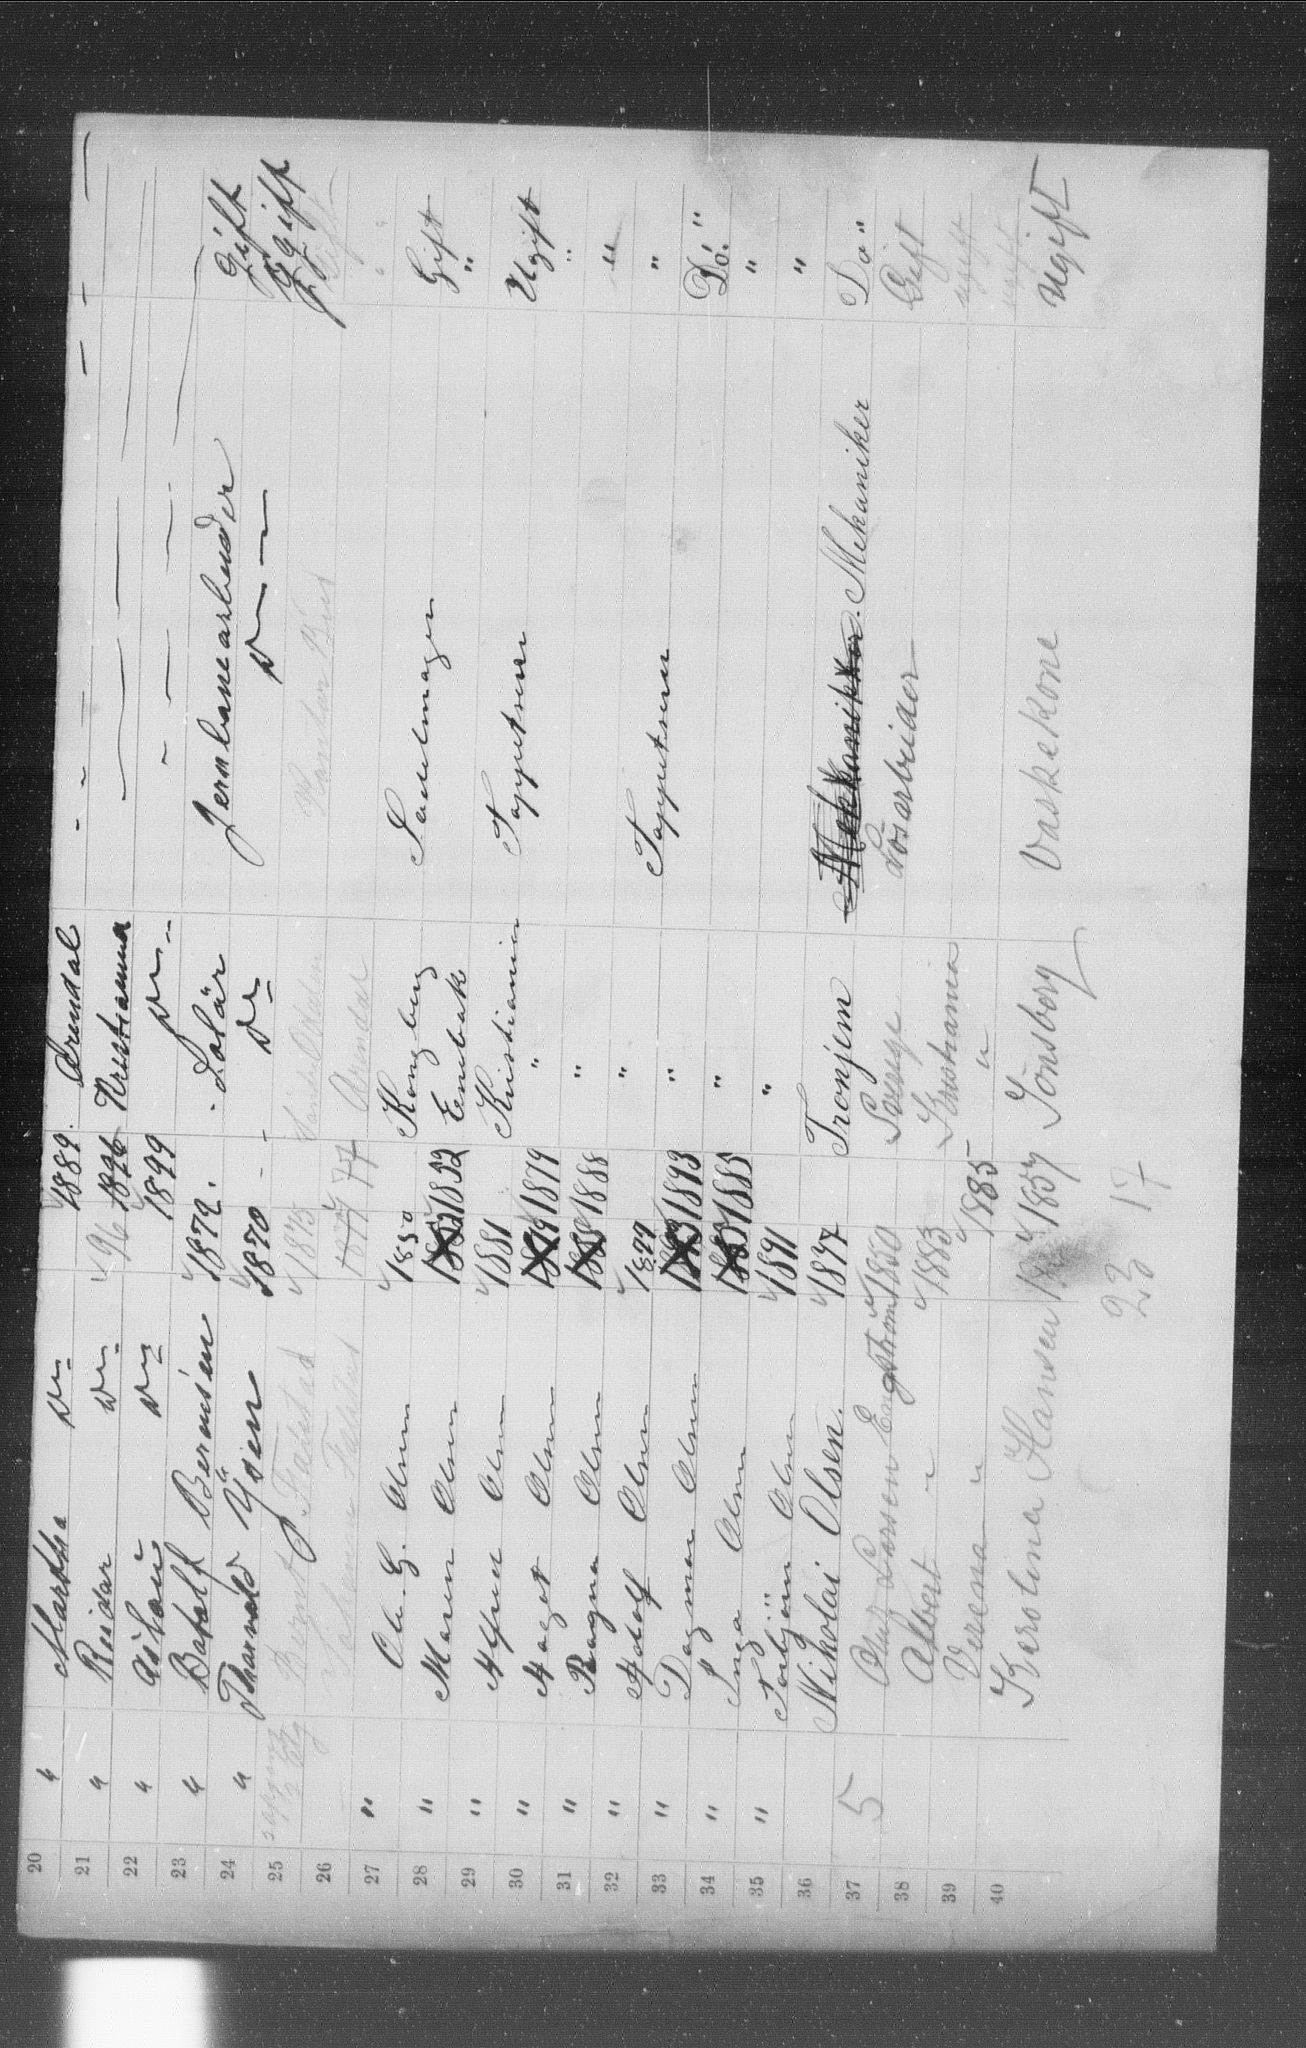 20 " Martha Do 1889. Arendal - - - -
21 " Reidar Do 96 1896 Kristiania
22 " Aslau Do 1899 Do
23 " Botolf Berntsen 1872. Solør Jernbanearbeider Gift
24 " Tharvald 1870 - Do Do Gift
25 Bernt 1875
26 1877 77 Arendal
27 " Ole G. Olsen 1850 Kongsberg Sadelmager Gift
28 " Maren Olsen 1852 1852 Enebak "
29 " Alfred Olsen 1881 Kristiania Tappetserer Ugift
30 " Aagot Olsen 1879 1879 " "
31 " Ragna Olsen 1888 1888 " "
32 " Adolf Olsen 1877 " Tappetserer "
33 " Dagmar Olsen 1893 1893 " Do. "
34 " Inga Olsen 1885 1885 " "
35 " Torbjørn Olsen 1891 " "
36 Nikolai Olsen. 1897 Tronjem Mekkaniker. Mekaniker Do "
37 5 Olaus Larsen Engstrøm 1850 Sverige Løsarbeider Gift
38 Albert " 1883 Kristiania ugift
39 Verena " 1885 " ugift
40 Karolina Hansen 1857 Jönsborg Vaskekone Ugift
23 17